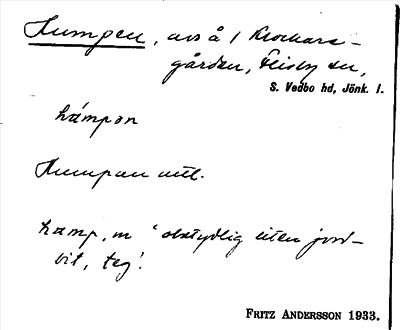 Humpen, avs å / Klockare-
gården, Flisby sn,
S. Vedbo hd, Jönk. l.
hámpən
Humpen utt.
hamp, m ‘obetydlig liten jord-
bit, teg’.
FRITZ ANDERSSON 1933.